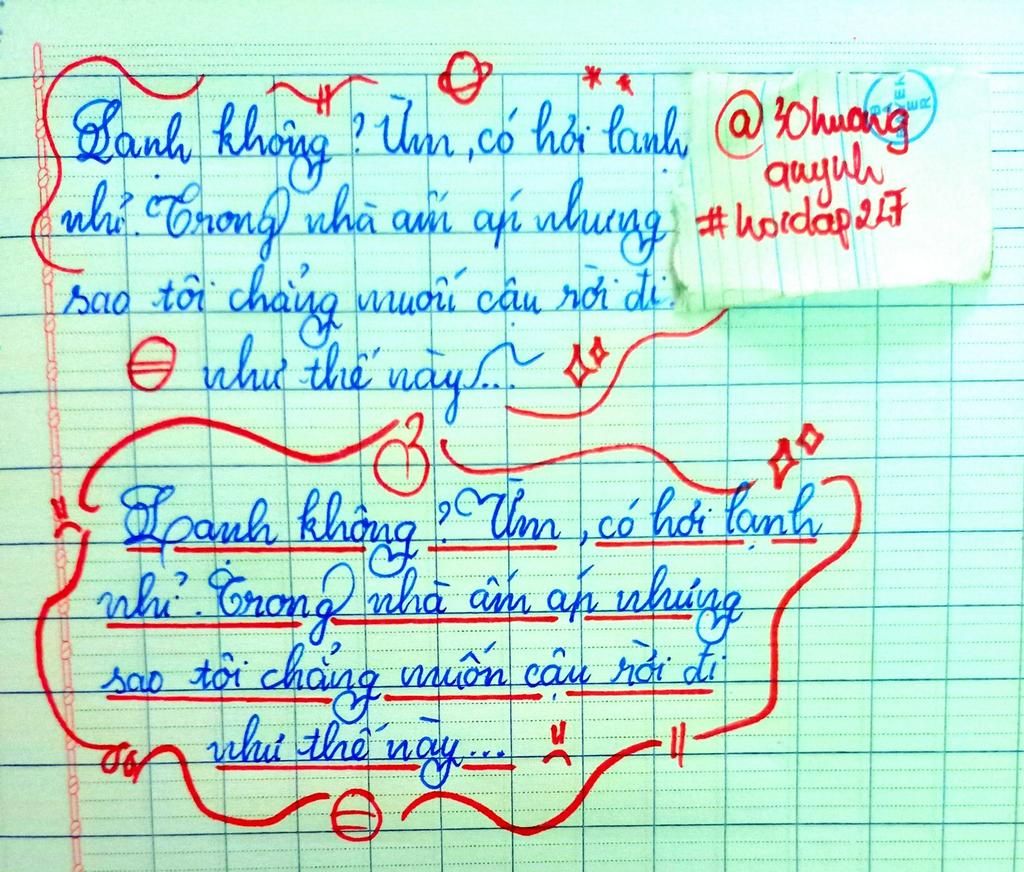 Lạnh không? Ừm, có hơi lạnh
@30huong
quynh
#hoidap247
nhỉ. Trong nhà ấm áp nhưng
sao tôi chẳng muốn cậu rời đi
như thế này...
Lạnh không? Ừm, có hơi lạnh
nhỉ. Trong nhà ấm áp nhưng
sao tôi chẳng muốn cậu rời đi
như thế này...